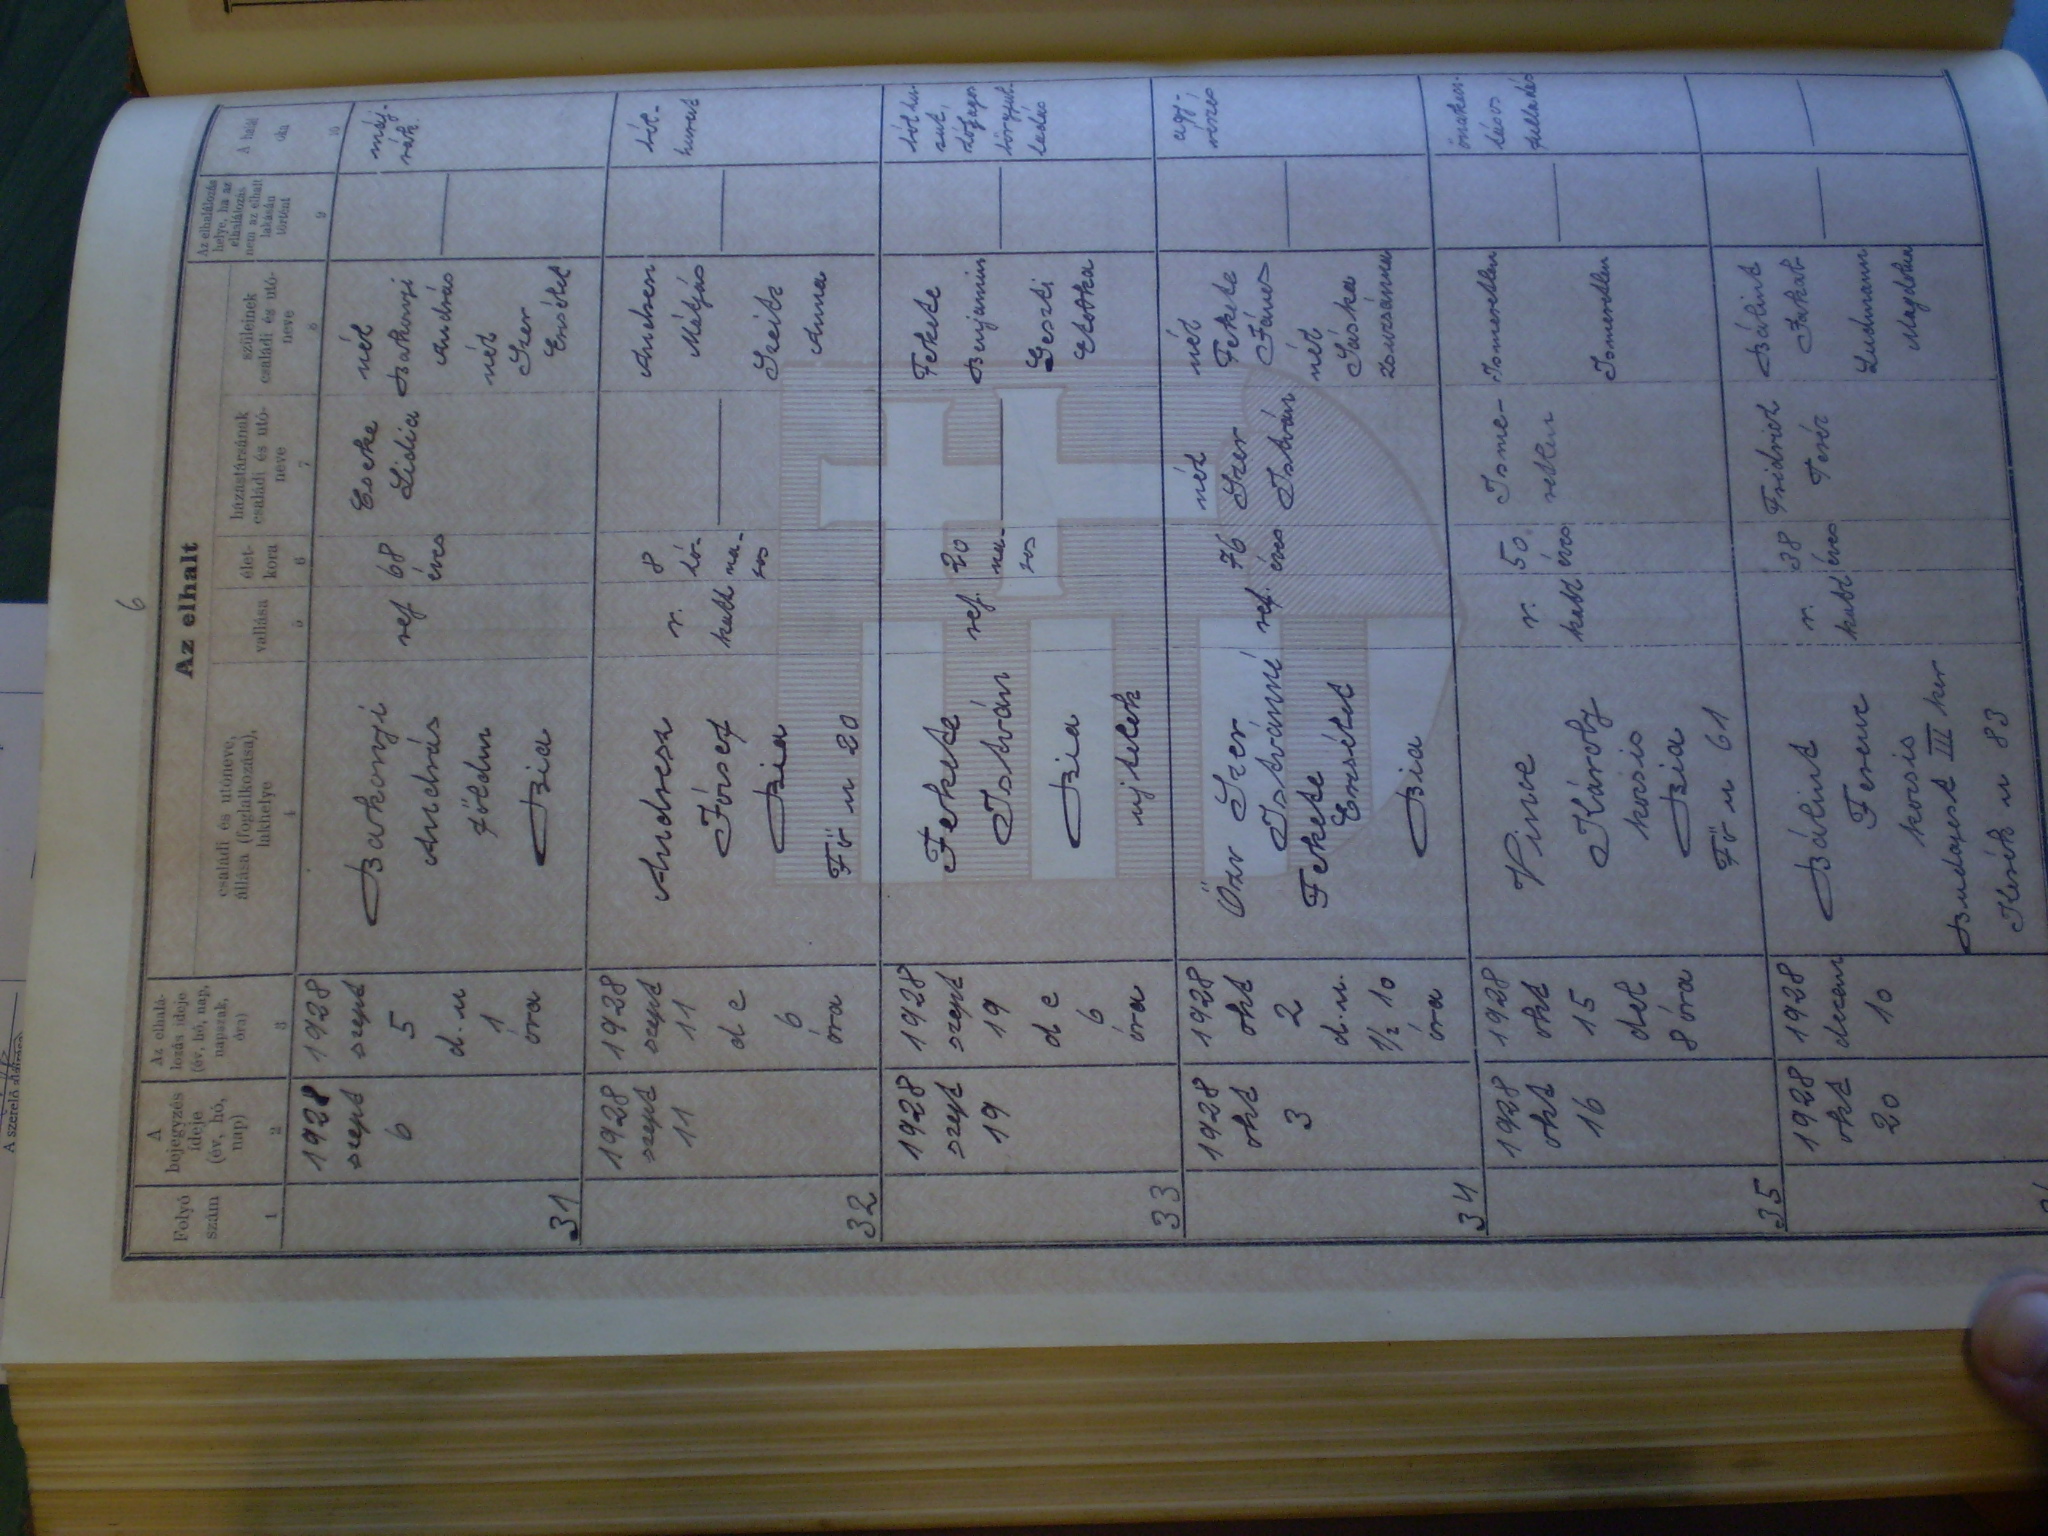 6
Az elhalt
Folyó
szám
1
A
bejegyzés
ideje
(év, hó,
nap)
2
Az elhalá-
lozás ideje
(év, hó, nap,
napszak,
óra)
3
családi és utóneve,
állása (foglalkozása),
lakhelye
4
vallása
5
élet-
kora
6
házastársának
családi és utó-
neve
7
szüleinek
családi és utó-
neve
8
Az elhalálozás
helye, ha az
elhalálozás
nem az elhalt
lakásán
történt
9
A halál
oka
10
31
1928
szept
6
1928
szept
5
d. u
1
óra
Bakonyi
András
földm
Bia
ref
68
éves
Cseke
Lidia
néh
Bakonyi
András
néh
Szer
Erzsébet
máj-
rák
32
1928
szept
11
1928
szept
11
d e
6
óra
Andresz
József
Bia
Fő u 20
r.
kath
8
hó-
na-
pos
Andresz
Mátyás
Szeitz
Anna
bél-
hurut
33
1928
szept
19
1928
szept
19
d e
6
óra
Fekete
István
Bia
ujtelek
ref.
20
na-
pos
Fekete
Benjamin
Geszti
Etelka
34
1928
okt
3
1928
okt
2
d. u.
1/2 10
óra
Özv Szer
Istvánné
Fekete
Erzsébet
Bia
ref.
76
éves
néh
Szer
István
néh
Fekete
János
néh
Sáska
Zsuzsánna
agy-
35
1928
okt
16
1928
okt
15
del
8 óra
Vince
Károly
kocsis
Bia
Fő u 61
r.
kath
50
éves
Isme-
retlen
Ismeretlen
Ismeretlen
1928
okt
20
1928
decem
10
Bálint
Ferenc
kocsis
Budapest III ker
u 83
r.
kath
38
éves
Fridrich
Teréz
Bálint
Jakab
Ludmann
Magdolna